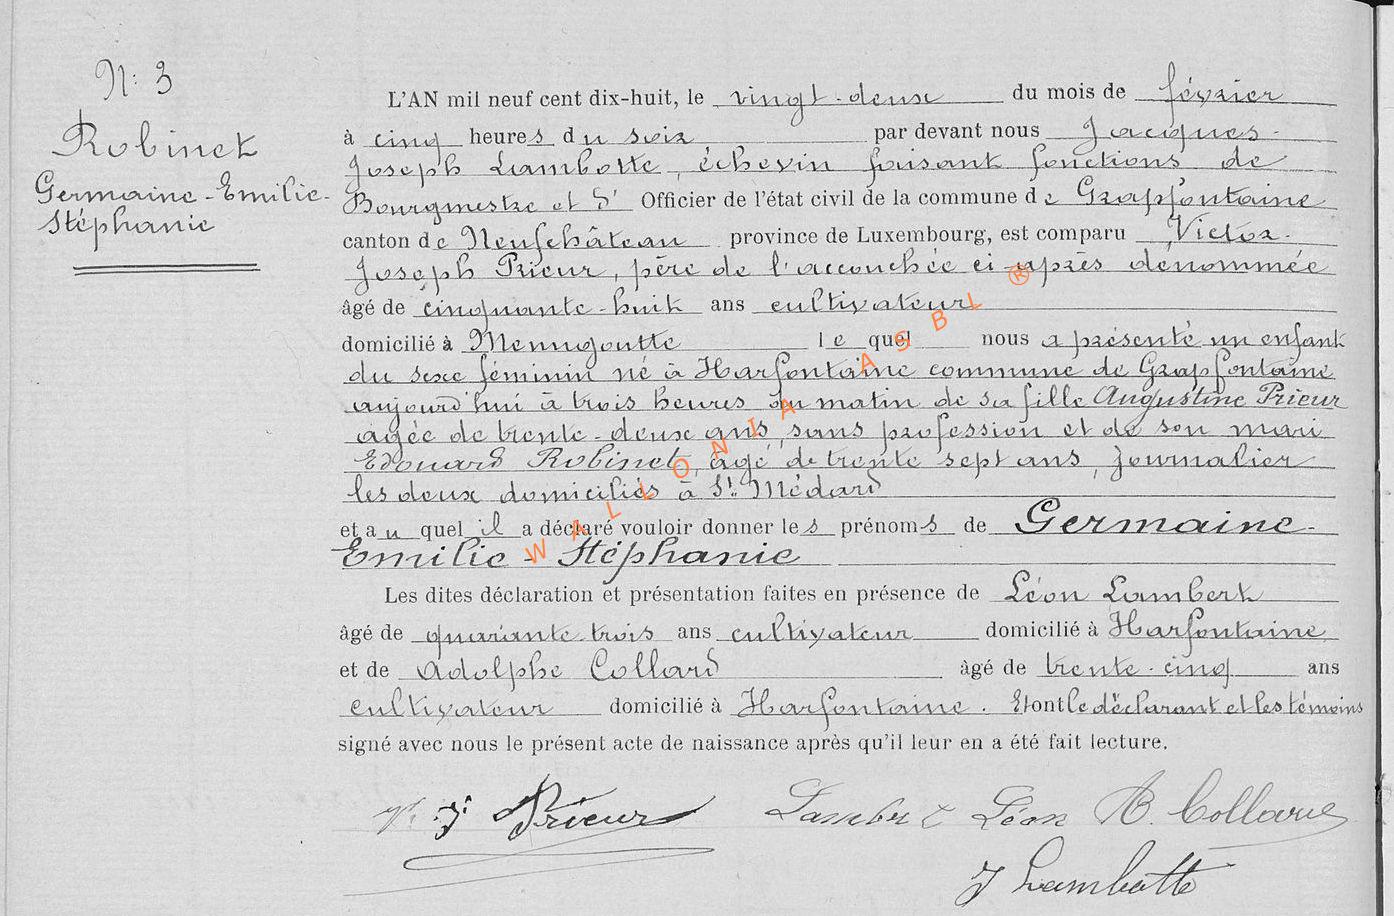 N: 3
Robinet
Germaine-Emilie-
Stéphanie
L'AN mil neuf cent dix-huit, le vingt-deux du mois de février
à cinq heures du soir par devant nous Jacques-
Joseph Lambotte, échevin faisant fonctions de
Bourgmestre et d' Officier de l'état civil de la commune de Grapfontaine
canton de Neufchâteau province de Luxembourg, est comparu Victor-
Joseph Prieur, père de l'accouchée ci après dénommée
âgé de cinquante-huit ans cultivateur
domicilié à Menugoutte le quel nous a présenté un enfant
du sexe féminin né à Harfontaine commune de Grapfontaine
aujourd'hui à trois heures du matin de sa fille Augustine Prieur
agée de trente-deux ans, sans profession et de son mari
Edouard Robinet, âgé de trente sept ans, journalier
les deux domiciliés à St. Médard
et au quel il a déclaré vouloir donner les prénoms de Germaine-
Emilie-Stéphanie
Les dites déclaration et présentation faites en présence de Léon Lambert
âgé de quarante-trois ans cultivateur domicilié à Harfontaine
et de Adolphe Collard âgé de trente-cinq ans
cultivateur domicilié à Harfontaine. Et ont le déclarant et les témoins
signé avec nous le présent acte de naissance après qu'il leur en a été fait lecture.
V. J. Prieur Lambert Léon A. Collard
J Lambotte
WALLONIA ASBL ®